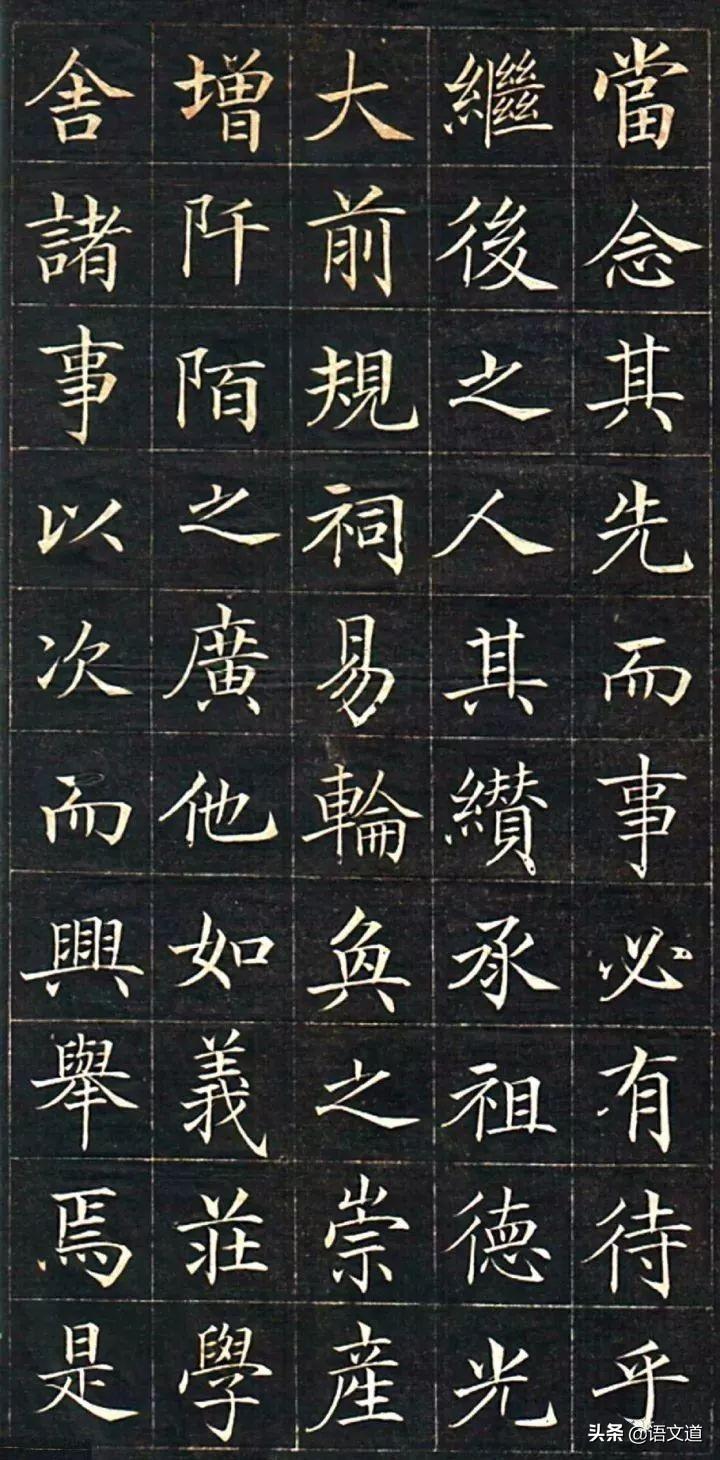 當念其先而事必有待乎
繼後之人其纘承祖德光
大前規祠易輪奐之崇産
增阡陌之廣他如義莊學
舍諸事以次而興舉焉是
头条 @语文道